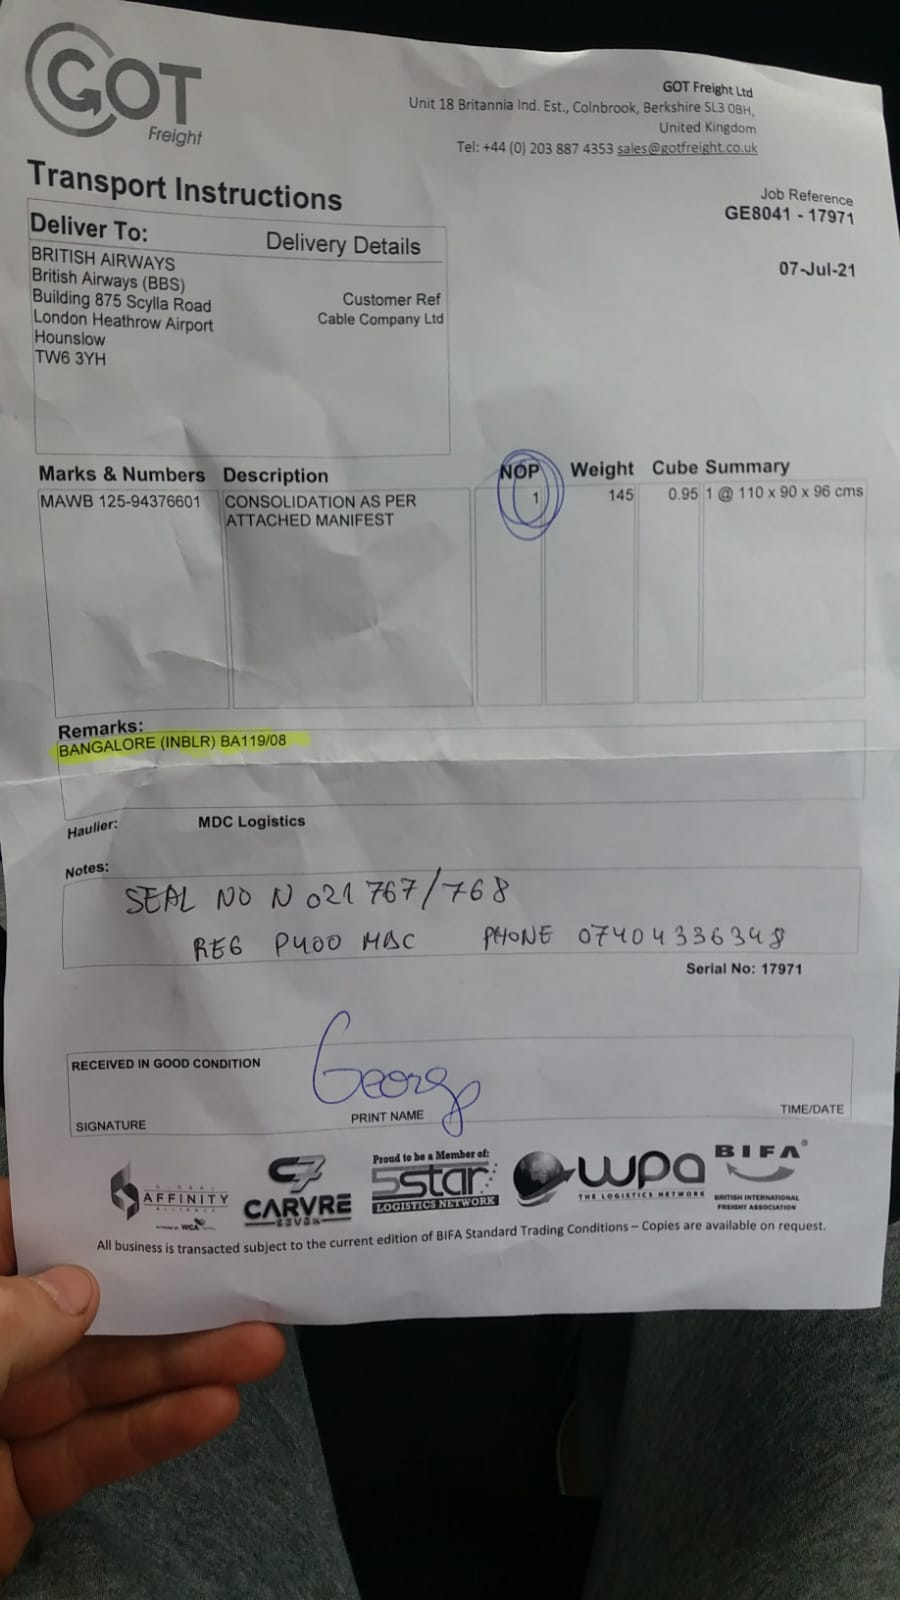 GOT
Freight
GOT Freight Ltd
Unit 18 Britannia Ind. Est., Colnbrook, Berkshire SL3 0BH,
United Kingdom
Tel: +44 (0) 203 887 4353 sales@gotfreight.co.uk
Transport Instructions
Job Reference
GE8041 - 17971
07-Jul-21
Deliver To:
Delivery Details
BRITISH AIRWAYS
British Airways (BBS)
Building 875 Scylla Road
London Heathrow Airport
Hounslow
TW6 3YH
Customer Ref
Cable Company Ltd
Marks & Numbers Description NOP Weight Cube Summary
MAWB 125-94376601 CONSOLIDATION AS PER 1 145 0.95 1 @ 110 x 90 x 96 cms
ATTACHED MANIFEST
Remarks:
BANGALORE (INBLR) BA119/08
Haulier: MDC Logistics
Notes:
SEAL NO N 021767/768
REG P400 MDC PHONE 07404336348
Serial No: 17971
RECEIVED IN GOOD CONDITION
Georg
SIGNATURE PRINT NAME TIME/DATE
GLOBAL
AFFINITY
ALLIANCE
POWERED BY WCA
C7
CARVRE
SEVEN
Proud to be a Member of:
5star
LOGISTICS NETWORK
wpa
THE LOGISTICS NETWORK
BIFA®
BRITISH INTERNATIONAL
FREIGHT ASSOCIATION
All business is transacted subject to the current edition of BIFA Standard Trading Conditions – Copies are available on request.